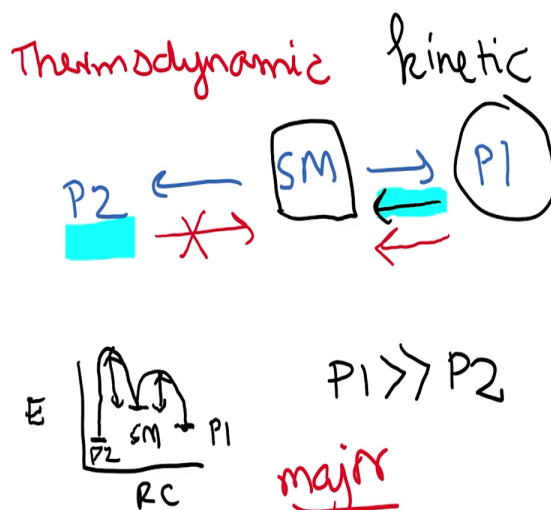 Thermodynamic kinetic
P2 SM P1
P1 >> P2
E
P2 SM P1
RC
major